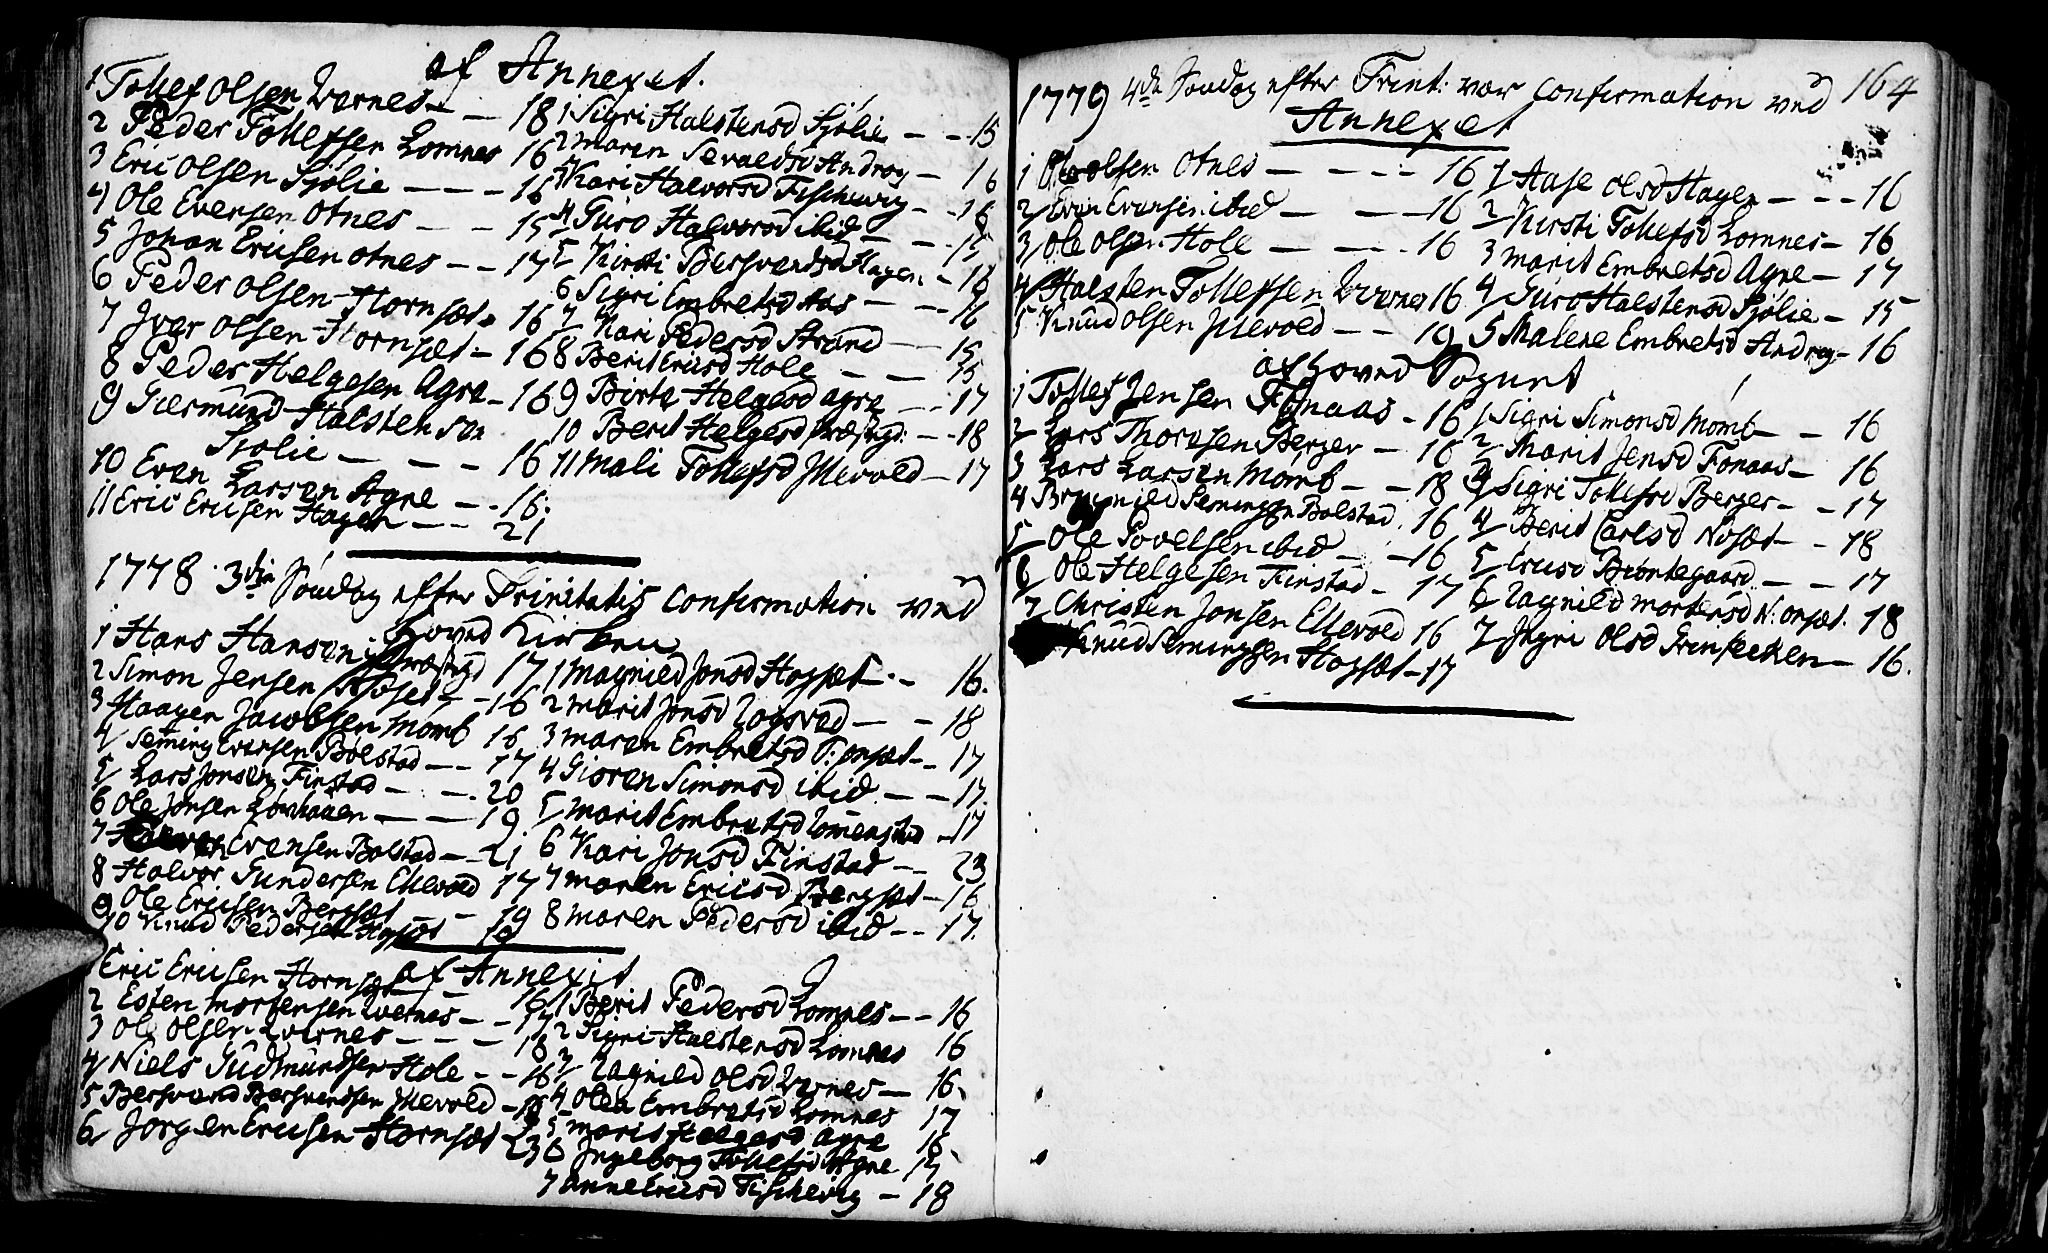 af Annexet.
1 Tollef Olsen Qvernes — 18
2 Peder Tollefsen Lomnes 16
3 Eric Olsen Sjølie — — — 16
4 Ole Evensen Otnes — — 15
5 Johan Ericsen Otnes — — 17
6 Peder Olsen Hornset 16
7 Iver Olsen Hornset — 16
8 Peder Helgesen Agre — 16
9 Giermund Halstensen
Siølie — — — 16
10 Even Larsen Agre — — 16.
11 Eric Ericsen Hagen — — 21
1 Sigri Halstensd Sjølie — — 15
2 Maren Sevaldsd Androg — 16
3 Kari Halvorsd Fischevig — 16
4 Guro Halvorsd ibid — — 15
5 Kirsti Bersvendsd Hagen. — 18
6 Sigri Embretsd Aas — — 16
7 Kari Pedersd Strand — 15
8 Berit Ericsd Hole — — 15
9 Birte Helgesd Agre — — 17
10 Berit Helgesd Præstgd: — 18
11 Mali Tollefsd Illevold — 17
1778. 3die Søndag efter Trinitatis Confirmation ved
Hoved Kirken
1 Hans Hansen Præstgd 17
2 Simon Jensen — 16
3 Haagen Jacobsen Momb 16
4 Seming Evensen Bolstad — — 17
5 Lars Jonsen Finstad — — 20
6 Ole Jonsen — — 19
7 Evensen Bolstad — 21
8 Halvor Gundersen Ellevold 17
9 Ole Ericsen Bergset — — 19
10 Knud Pedersen
1 Magnild Jonsd Hogset — 16.
2 Marit Jonsd — — 18
3 Maren Embretsd — 17
4 Giøren Simonsd ibid — — 17.
5 Marit Embretsd — 17
6 Kari Jonsd Finstad — 23
7 Maren Ericsd Bergset — 16
8 Maren Pedersd ibid — — 17.
af Annexet
1 Eric Ericsen Hornset — 16
2 Esten Mortensen Qvernes — — 17
3 Ole Olsen Qvernes — — — 18
4 Niels Gudmundsen Hole — — 16
5 Bersvend Bersvendsen Illevold — 18
6 Jørgen Ericsen Hornset 23
1 Berit Pedersd Lomnes — — 16
2 Sigri Halstensd Lomnes 16
3 Ragnild Olsd Qvernes — 16.
4 Olea Embretsd Lomnes 17
5 Marit Helgesd Agre 16.
6 Ingeborg Tollefsd Agre 17
7 Anne Ericsd Fischevig — 18
164
1779 4de Søndag efter Trint: var Confirmation ved
Annexet
1 Ole Olsen Otnes — — — 16
2 Even Evensen ibid — — — 16
3 Ole Olsen Hole — — — 16
4 Halsten Tollefsen Qvernes 16
5 Knud Olsen Illevold — — 19
1 Aase Olsd Hagen — — — 16
2 Kirsti Tollefsd Lomnes — 16
3 Marit Embretsd Agre — 17
4 Guro Halstensd Sjølie — 15
5 Malene Embretsd Androg — 16
af Hoved Sognet
1 Tollef Jensen Fonaas — 16
2 Lars Thoresen Berger — 16
3 Lars Larsen Momb — — 18
4 Semingsen Bolstad. 16
5 Ole Povelsen ibid — — 16
6 Ole Helgesen Finstad — 17
7 Christen Jonsen Ellevold 16
Knud Semingsen Hogset — 17
1 Sigri Simonsd Momb — — 16
2 Marit Jensd Fonaas — 16
3 Sigri Tollefsd Berger — — 17
4 Berit Carlsd Nøset — — 18
5 Ericsd — — 17
6 Ragnild Mortensd 18
7 Ingri Olsd — 16.